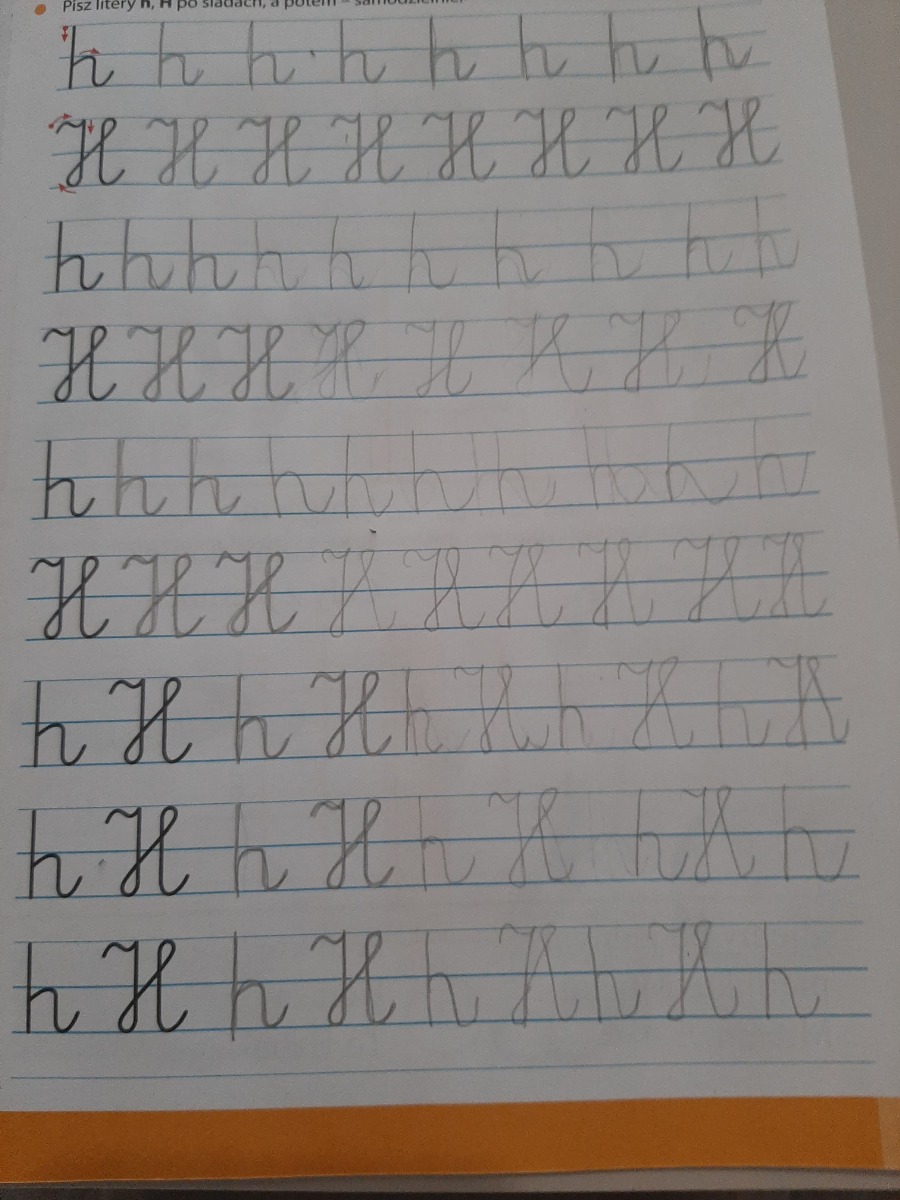 Pisz litery h, H po śladach, a potem – samodzielnie.
h h h h h h h h
H H H H H H H H
h h h h h h h h h h
H H H H H H H H
h h h h h h h h h h
H H H H H H H H H
h H h H h H h H h H
h H h H h H h H h
h H h H h H h H h